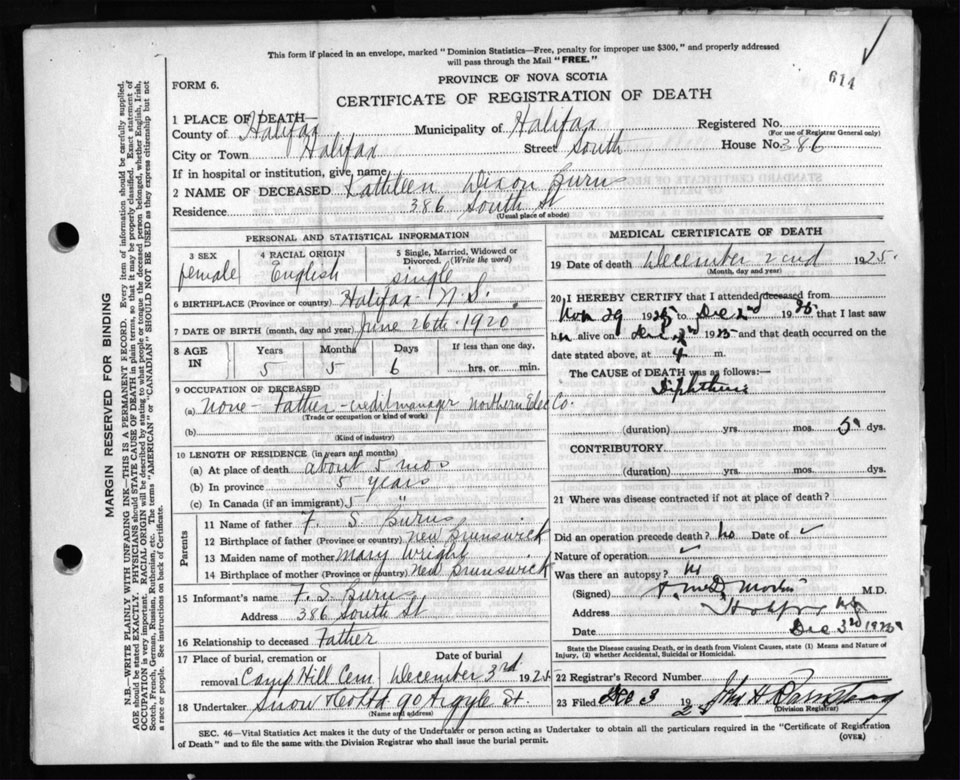 This form if placed in an envelope, marked "Dominion Statistics—Free, penalty for improper use $300," and properly addressed
will pass through the Mail "FREE."
614
FORM 6.
PROVINCE OF NOVA SCOTIA
CERTIFICATE OF REGISTRATION OF DEATH
1 PLACE OF DEATH—
County of Halifax Municipality of Halifax Registered No.
(For use of Registrar General only)
City or Town Halifax Street South House No. 386
If in hospital or institution, give name
2 NAME OF DECEASED Kathleen Dixon Burns
Residence 386 South St
(Usual place of abode)
PERSONAL AND STATISTICAL INFORMATION
3 SEX 4 RACIAL ORIGIN 5 Single, Married, Widowed or
Divorced. (Write the word)
female English single
6 BIRTHPLACE (Province or country) Halifax N.S.
7 DATE OF BIRTH (month, day and year) June 26th 1920
8 AGE IN Years Months Days If less than one day,
5 5 6 hrs. or min.
9 OCCUPATION OF DECEASED
(a) None - Father - credit manager Northern Elec Co.
(Trade or occupation or kind of work)
(b)
(Kind of industry)
10 LENGTH OF RESIDENCE (in years and months)
(a) At place of death about 5 mos
(b) In province 5 years
(c) In Canada (if an immigrant) 5 "
Parents
11 Name of father F. S. Burns
12 Birthplace of father (Province or country) New Brunswick
13 Maiden name of mother Mary Wright
14 Birthplace of mother (Province or country) New Brunswick
15 Informant's name F. S. Burns
Address 386 South St
16 Relationship to deceased Father
17 Place of burial, cremation or Date of burial
removal Camp Hill Cem December 3rd 1925
18 Undertaker Snow & Co Ltd 90 Argyle St.
(Name and address)
MEDICAL CERTIFICATE OF DEATH
19 Date of death December 2nd 1925.
(Month, day and year)
20 I HEREBY CERTIFY that I attended deceased from
Nov 29 1925 to Dec 2nd 1925 that I last saw
her alive on Dec 2nd 1925 and that death occurred on
date stated above, at 4 m.
The CAUSE of DEATH was as follows:—
Diphtheria
(duration) yrs. mos. 5 dys.
CONTRIBUTORY
(duration) yrs. mos. dys.
21 Where was disease contracted if not at place of death?
Did an operation precede death? No Date of ✓
Nature of operation ✓
Was there an autopsy? No
(Signed) M.D.
Address Halifax NS
Date Dec 3rd 1925
State the Disease causing Death, or in death from Violent Causes, state (1) Means and Nature of
Injury, (2) whether Accidental, Suicidal or Homicidal.
22 Registrar's Record Number
23 Filed Dec 3 1925 John H
Division Registrar
SEC. 46—Vital Statistics Act makes it the duty of the Undertaker or person acting as Undertaker to obtain all the particulars required in the "Certificate of Registration
of Death" and to file the same with the Division Registrar who shall issue the burial permit.
(OVER)
MARGIN RESERVED FOR BINDING
N.B.—WRITE PLAINLY WITH UNFADING INK—THIS IS A PERMANENT RECORD. Every item of information should be carefully supplied.
AGE should be stated EXACTLY. PHYSICIANS should STATE CAUSE OF DEATH in plain terms, so that it may be properly classified. Exact statement of
OCCUPATION is very important. RACIAL ORIGIN will be described by stating to what people or tongue the deceased person belonged, whether English, Irish,
Scotch, French, German, Russian, Ruthenian, etc. The terms "AMERICAN" or "CANADIAN" SHOULD NOT BE USED as they express citizenship but not
a race or people. See instructions on back of Certificate.